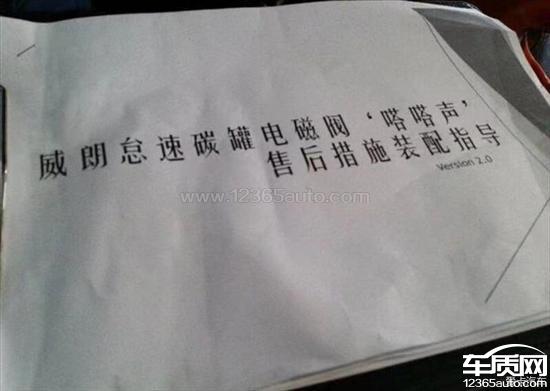 威朗怠速碳罐电磁阀‘嗒嗒声’
售后措施装配指导
Version 2.0
www.12365auto.com
车质网
12365auto.com